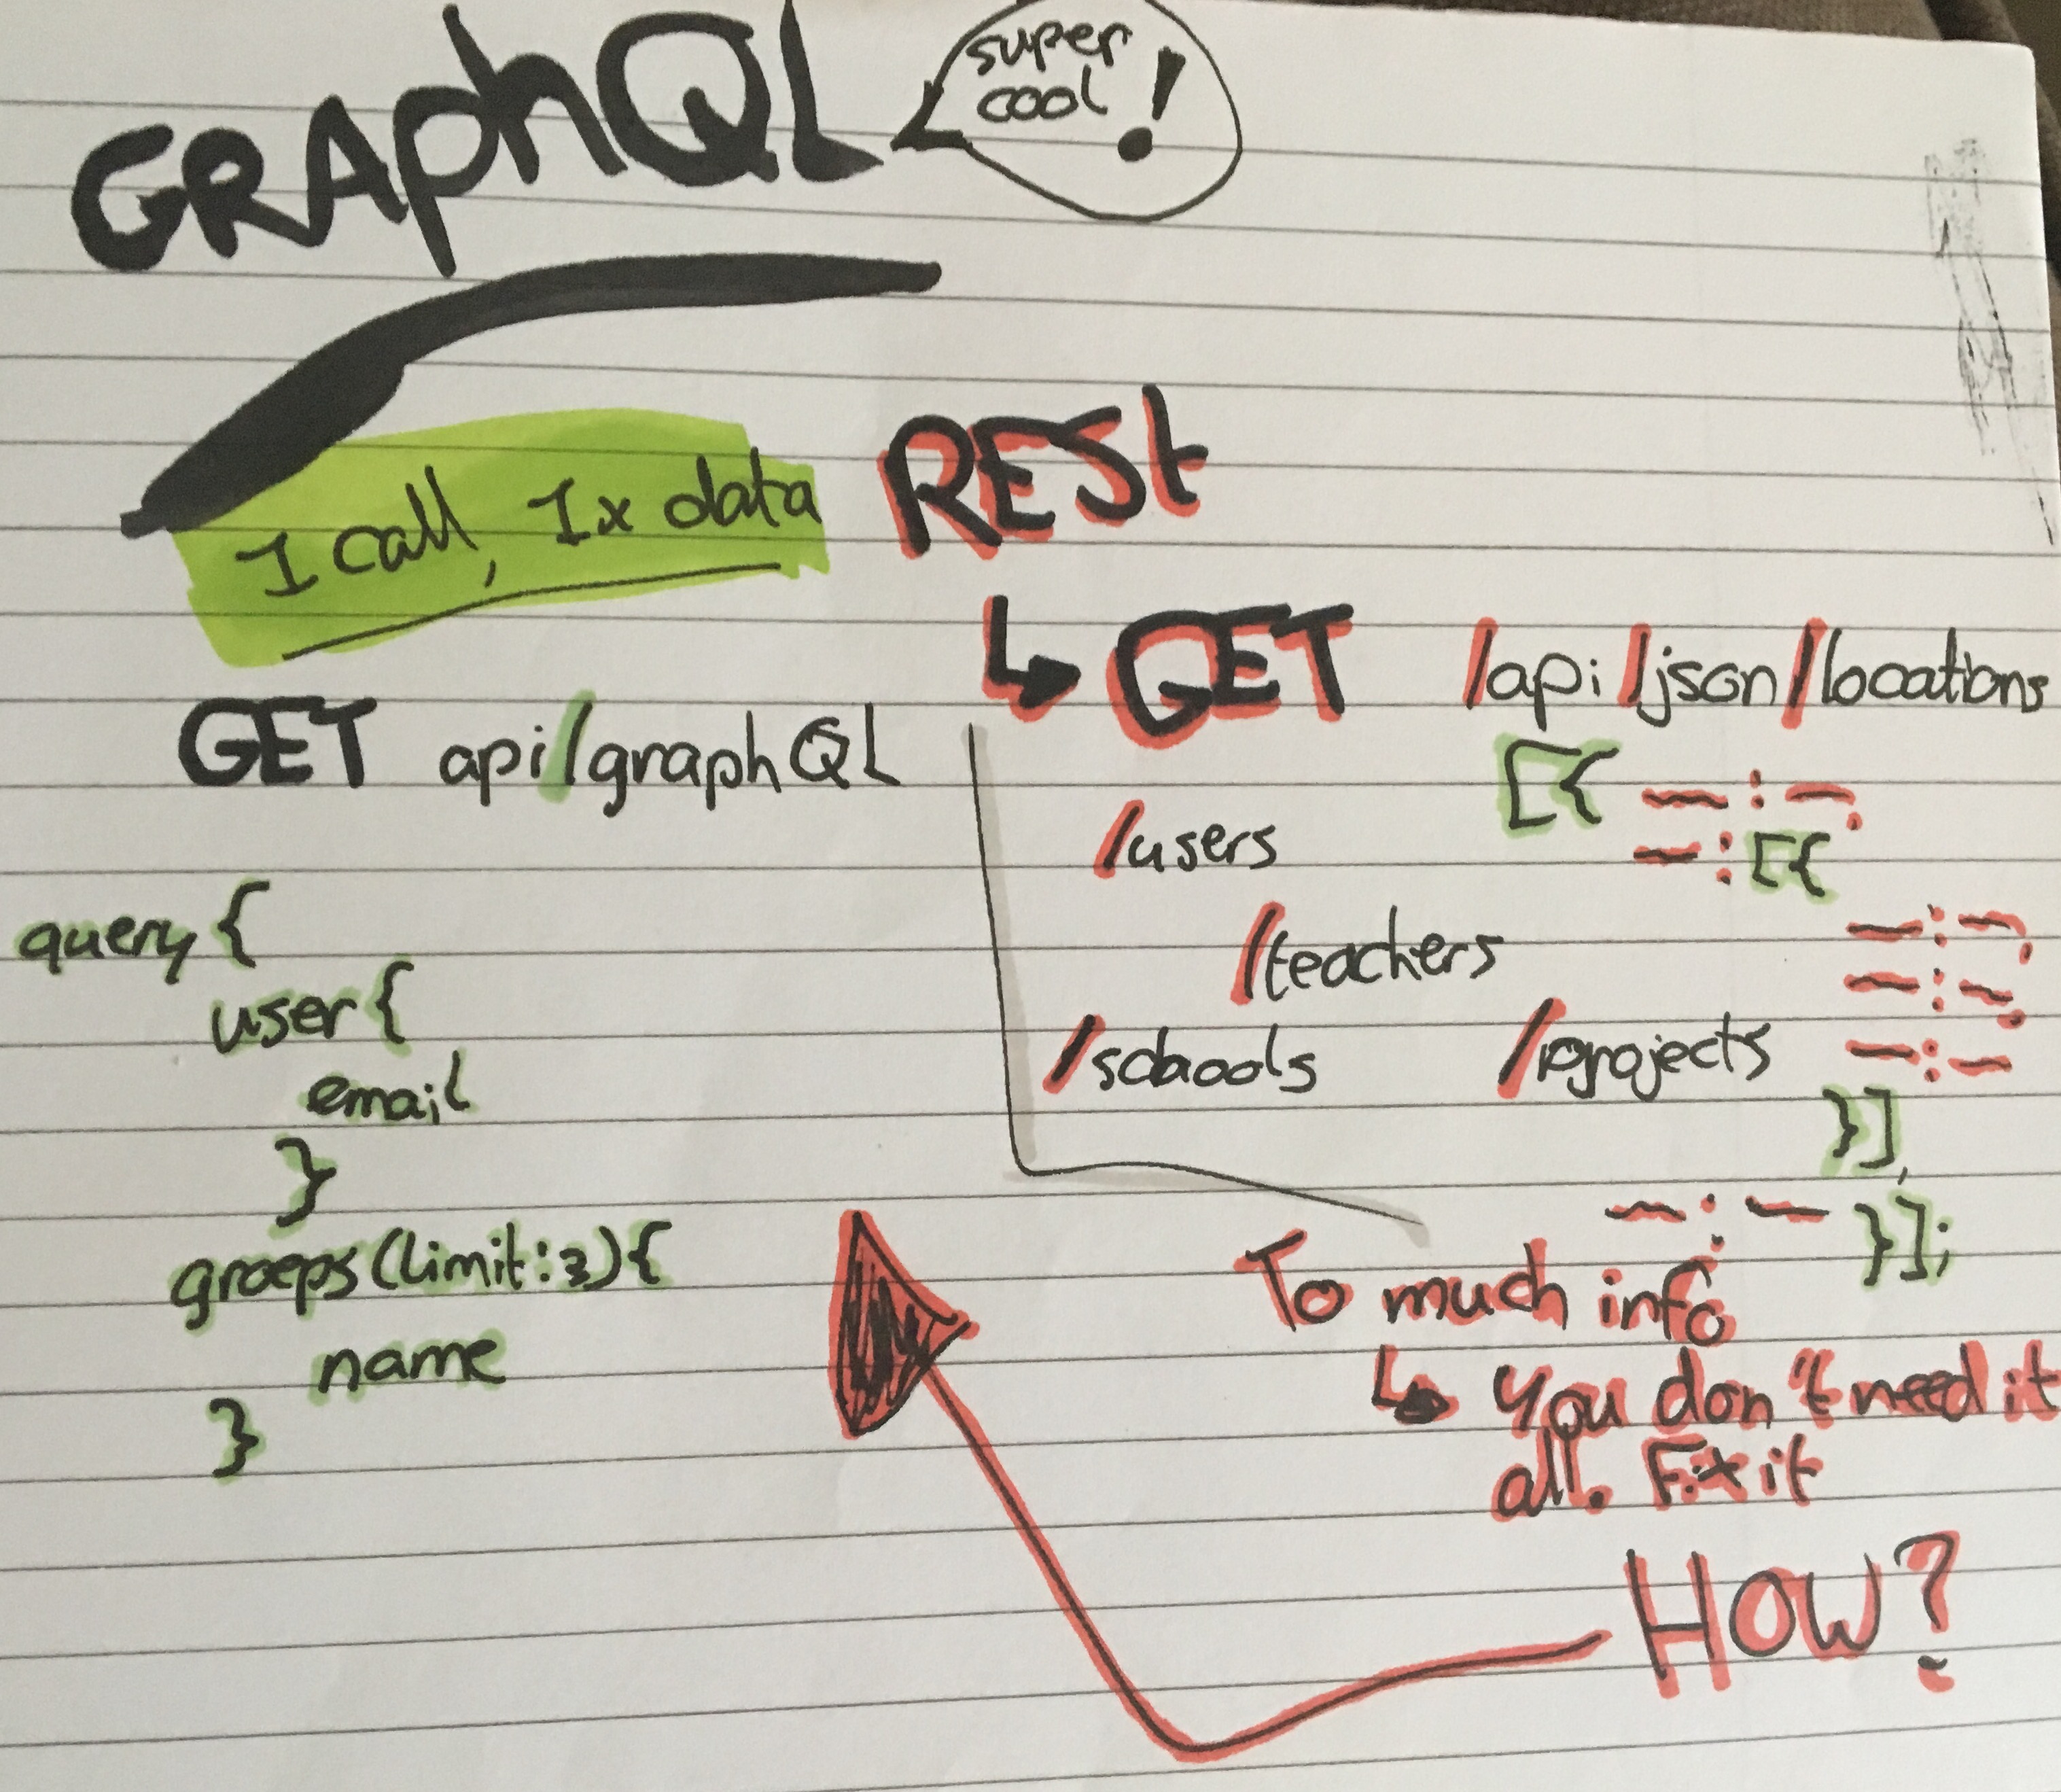 GRAphQL
super
cool!
1 call, 1x data
GET api/graphQL
query {
user {
email
}
groeps (limit:3) {
name
}
RESt
↳ GET /api/json/locations
/users
/teachers
/schools /projects
[{ — : —,
— : [{
— : —,
— : —,
— : —
}],
— : —
}];
To much info
↳ you don't need it
all. Fix it
HOW?